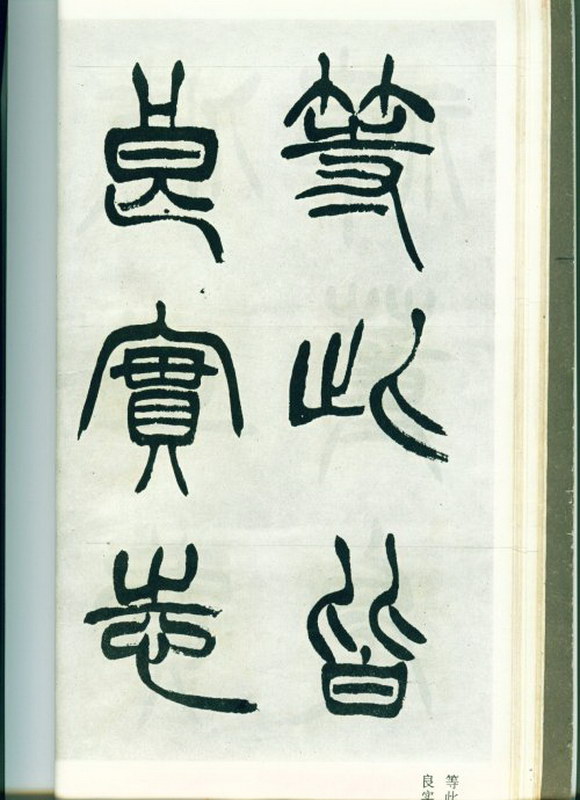 等此皆
良實志
等此
良实